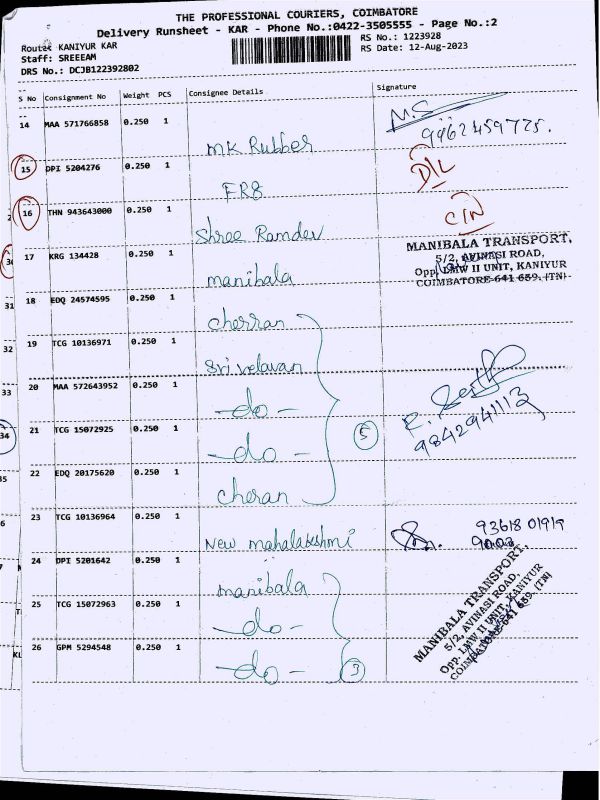 THE PROFESSIONAL COURIERS, COIMBATORE
Delivery Runsheet - KAR - Phone No.:0422-3505555 - Page No.:2
Route: KANIYUR KAR
RS No.: 1223928
Staff: SREEEAM
RS Date: 12-Aug-2023
DRS No.: DCJB122392802
S No Consignment No Weight PCS Consignee Details Signature
14 MAA 571766858 0.250 1 MK Rubber M.S
15 DPI 5204276 0.250 1 FR8 D/L
16 THN 943643000 0.250 1 Shree Ramdev C/N
17 KRG 134428 0.250 1 manibala
MANIBALA TRANSPORT,
5/2, AVINASI ROAD,
Opp. LMW II UNIT, KANIYUR
COIMBATORE-641 659. (TN)
18 EDQ 24574595 0.250 1 cherran
19 TCG 10136971 0.250 1 Sri velavan
20 MAA 572643952 0.250 1 -do-
21 TCG 15072925 0.250 1 -do- 5
9842941113
22 EDQ 20175620 0.250 1 cheran
23 TCG 10136964 0.250 1 New mahalakshmi
24 DPI 5201642 0.250 1 manibala
25 TCG 15072963 0.250 1 -do-
26 GPM 5294548 0.250 1 -do- 3
MANIBALA TRANSPORT,
5/2, AVINASI ROAD,
Opp. LMW II UNIT, KANIYUR
COIMBATORE-641 659. (TN)
31
32
33
34